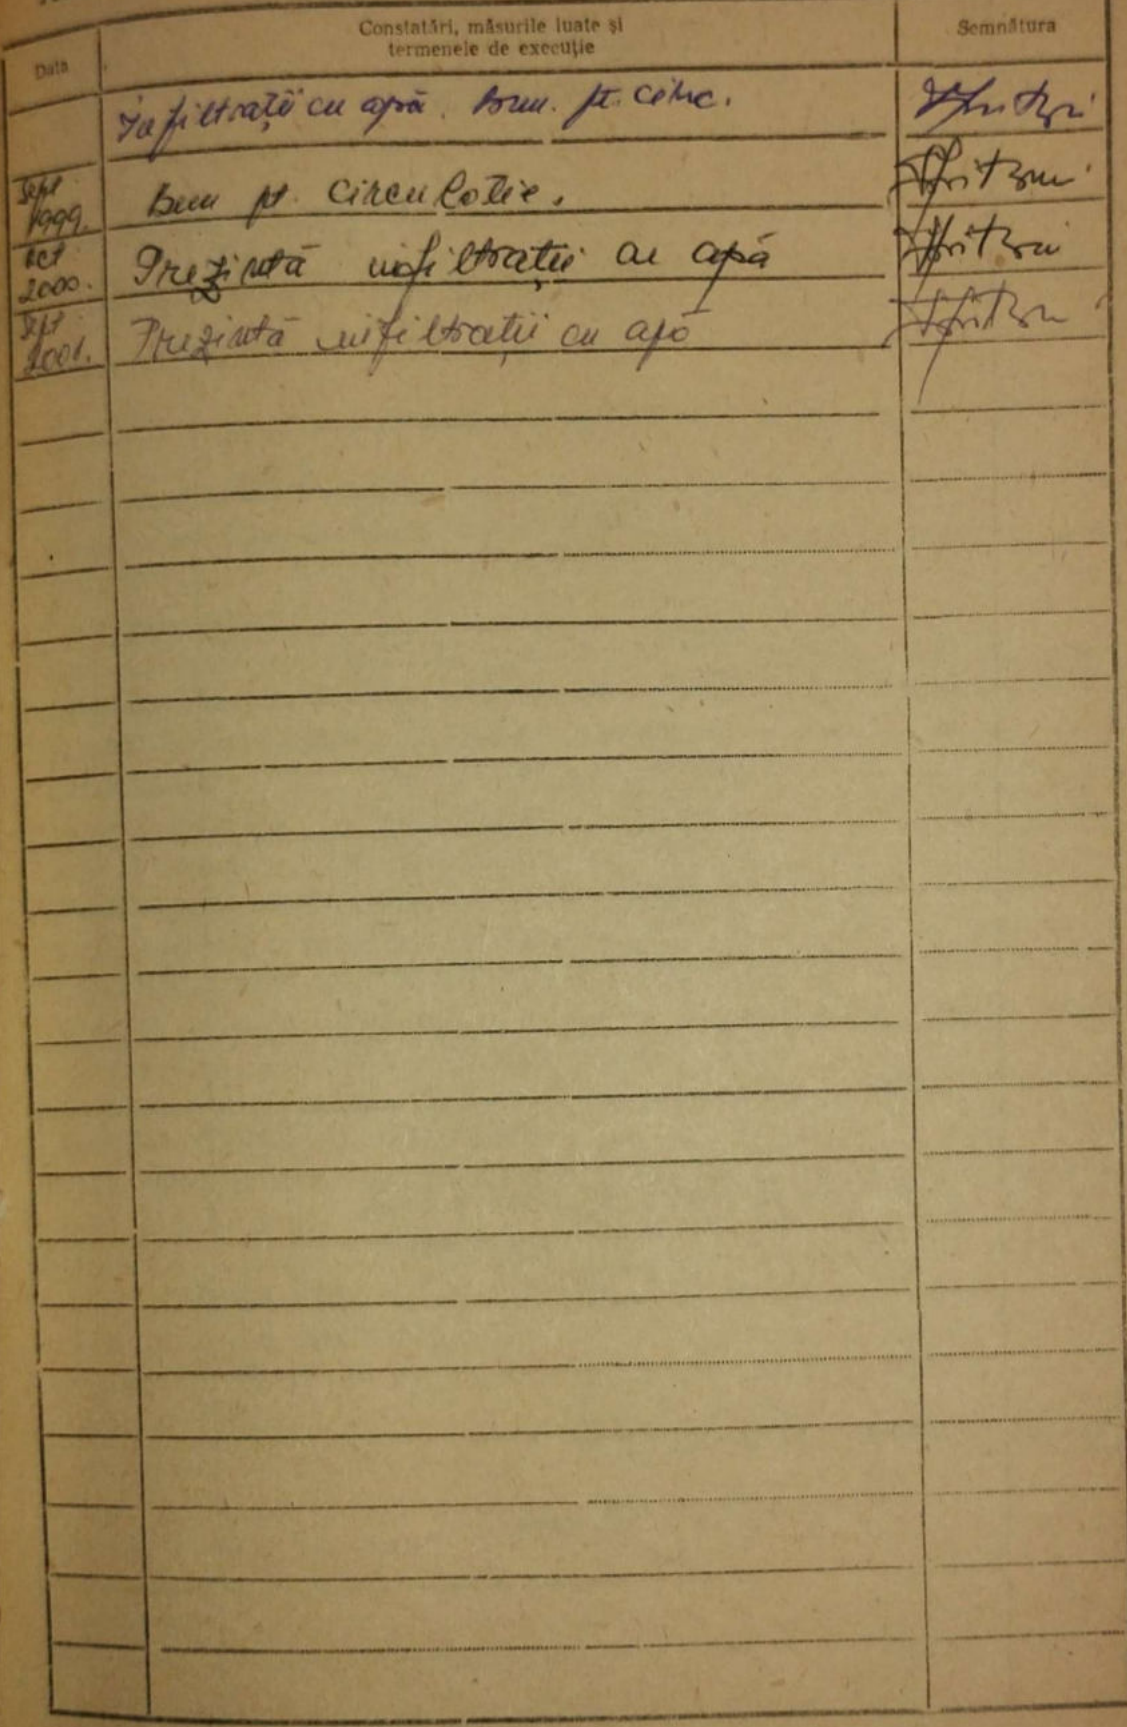 Constatări, măsurile luate și
termenele de execuție
Semnătura
Data
Infiltrații cu apă. Bun. pt. circ.
Sept
1999. Bun pt. circulație.
oct
2000. Prezintă infiltrații cu apă
Sept
2001. Prezintă infiltrații cu apă